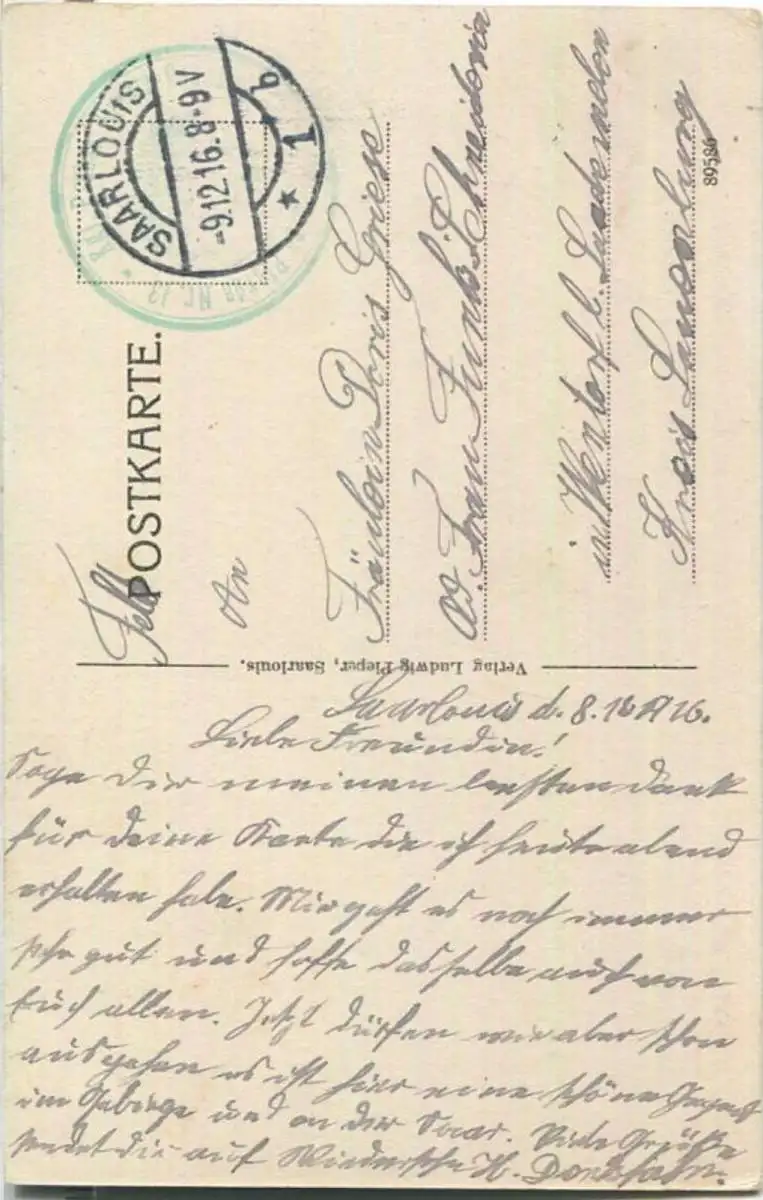 POSTKARTE.
Feld
SAARLOUIS
-9.12.16.8-9V
* 1 b
Nr. 12
An
Fräulein Doris Griese
Ad. Frau Funk Schneiderin
in Wentorf b.
Kreis Lauenburg
89586
Verlag Ludwig Pieper, Saarlouis.
Saarlouis d. 8. 12 1916.
Liebe Freundin!
Sage dir meinen besten Dank
für deine Karte die ich heute abend
erhalten habe. Mir geht es noch immer
sehr gut und hoffe dasselbe auch von
Euch allen. Jetzt dürfen wir aber schon
ausgehen es ist hier eine schöne Gegend
im Gebirge und an der Saar. Viele Grüße
sendet dir auf Wiedersehn H.